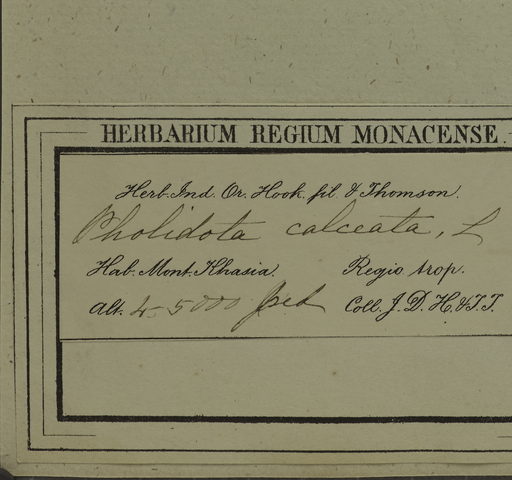 HERBARIUM REGIUM MONACENSE.
Herb. Ind. Or. Hook. fil. & Thomson.
Pholidota calceata, L
Hab. Mont. Khasia. Regio trop.
Alt. 4-5000 feet Coll. J. D. H. & T. T.